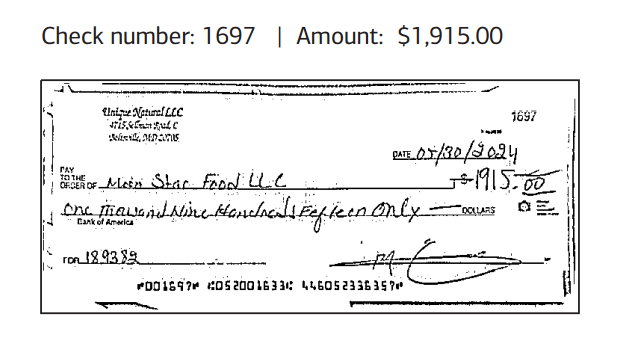 Check number: 1697 | Amount: $1,915.00
Unique Natural LLC
4715 Sellman Road, C
Beltsville, MD 20705
1697
DATE 05/30/2024
PAY TO THE ORDER OF Main Star Food LLC $1915.00
One Thousand Nine Hundreds Fefteen Only DOLLARS
Bank of America
FOR 189383
⑈001697⑈ ⑆052001633⑆ 446052336357⑈